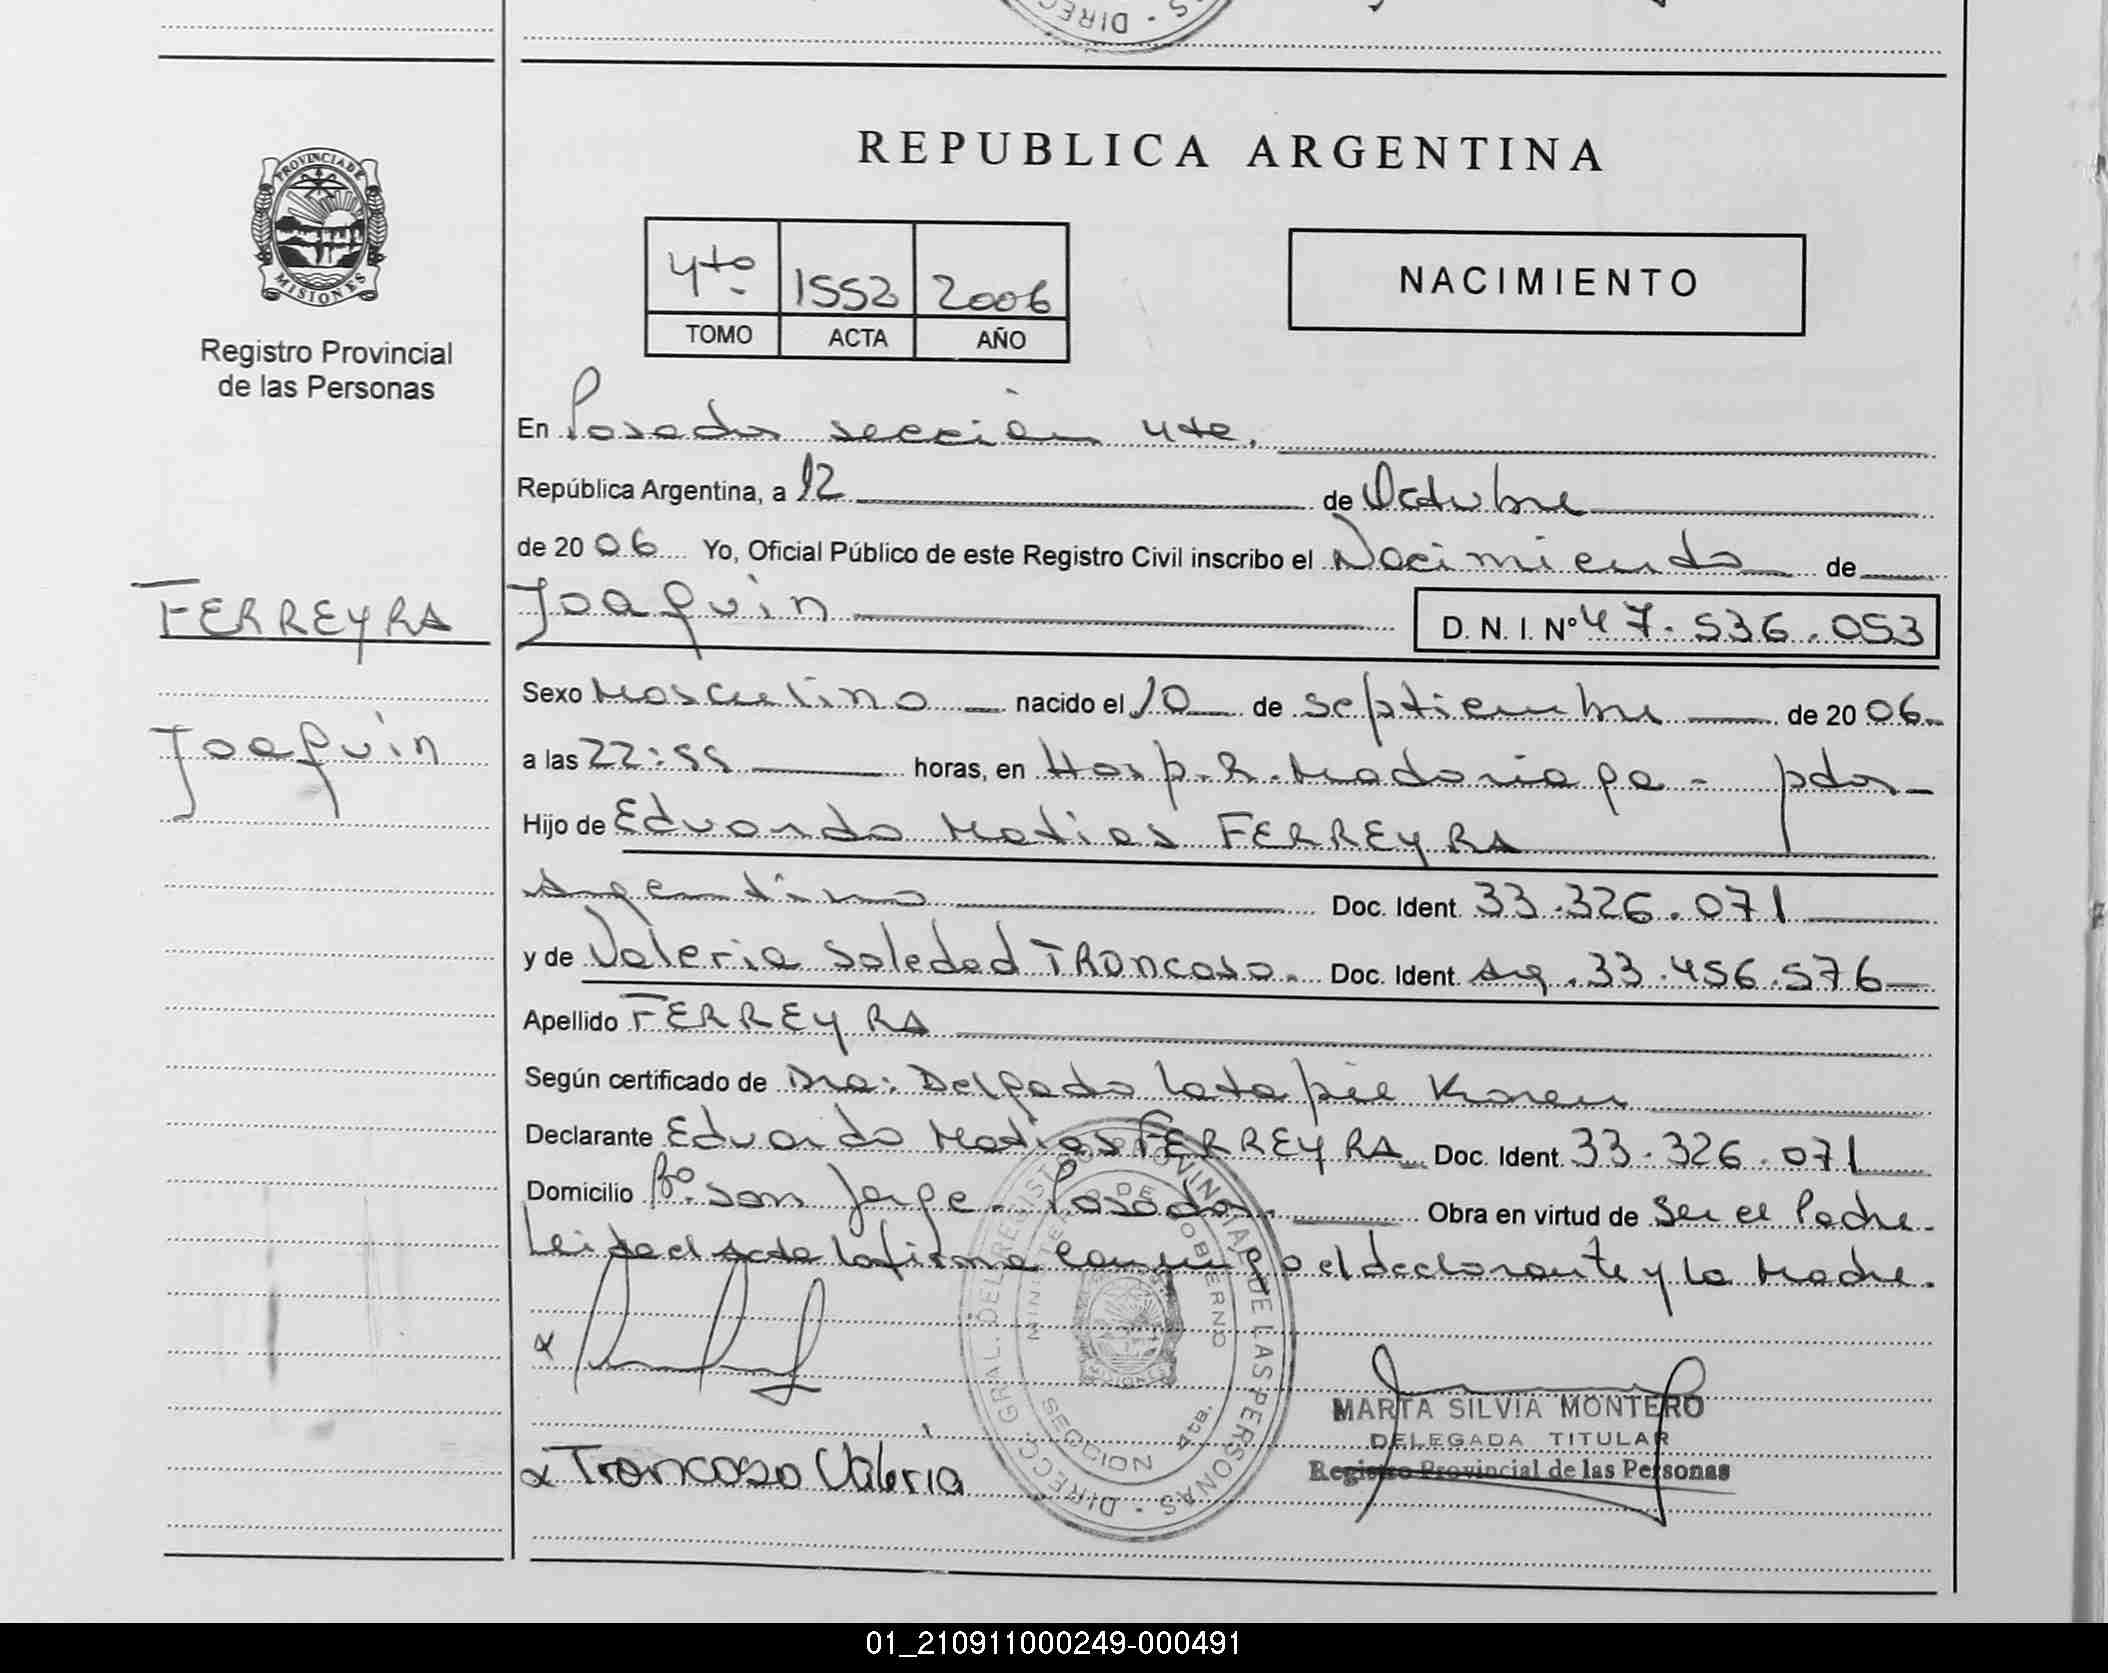 DIREC
REPUBLICA ARGENTINA
PROVINCIA DE
MISIONES
Registro Provincial
de las Personas
4to 1553 2006
TOMO ACTA AÑO
NACIMIENTO
En Posadas sección 4ta.
República Argentina, a 12 de Octubre
de 2006 Yo, Oficial Público de este Registro Civil inscribo el Nacimiento de
FERREYRA
Joaquin
Joaquin D. N. I. Nº 47.536.053
Sexo Masculino nacido el 10 de septiembre de 2006
a las 22:55 horas, en Hosp. R. Madariaga - pdas
Hijo de Eduardo Matias FERREYRA
Argentino Doc. Ident. 33.326.071
y de Valeria Soledad TRONCOSO. Doc. Ident. Arg. 33.456.576
Apellido FERREYRA
Según certificado de Dra: Delgado Latapie Karen
Declarante Eduardo Matias FERREYRA Doc. Ident. 33.326.071
Domicilio Bº. San Jorge - Posadas. Obra en virtud de Ser el Padre.
Leida el Acta la firma conmigo el declarante y la Madre.
DIRECC. GRAL. DEL REGISTRO PROVINCIAL DE LAS PERSONAS
MINISTERIO DE GOBIERNO
MISIONES
SECCION 4ta.
MARTA SILVIA MONTERO
DELEGADA TITULAR
Registro Provincial de las Personas
Troncoso Valeria
01_210911000249-000491